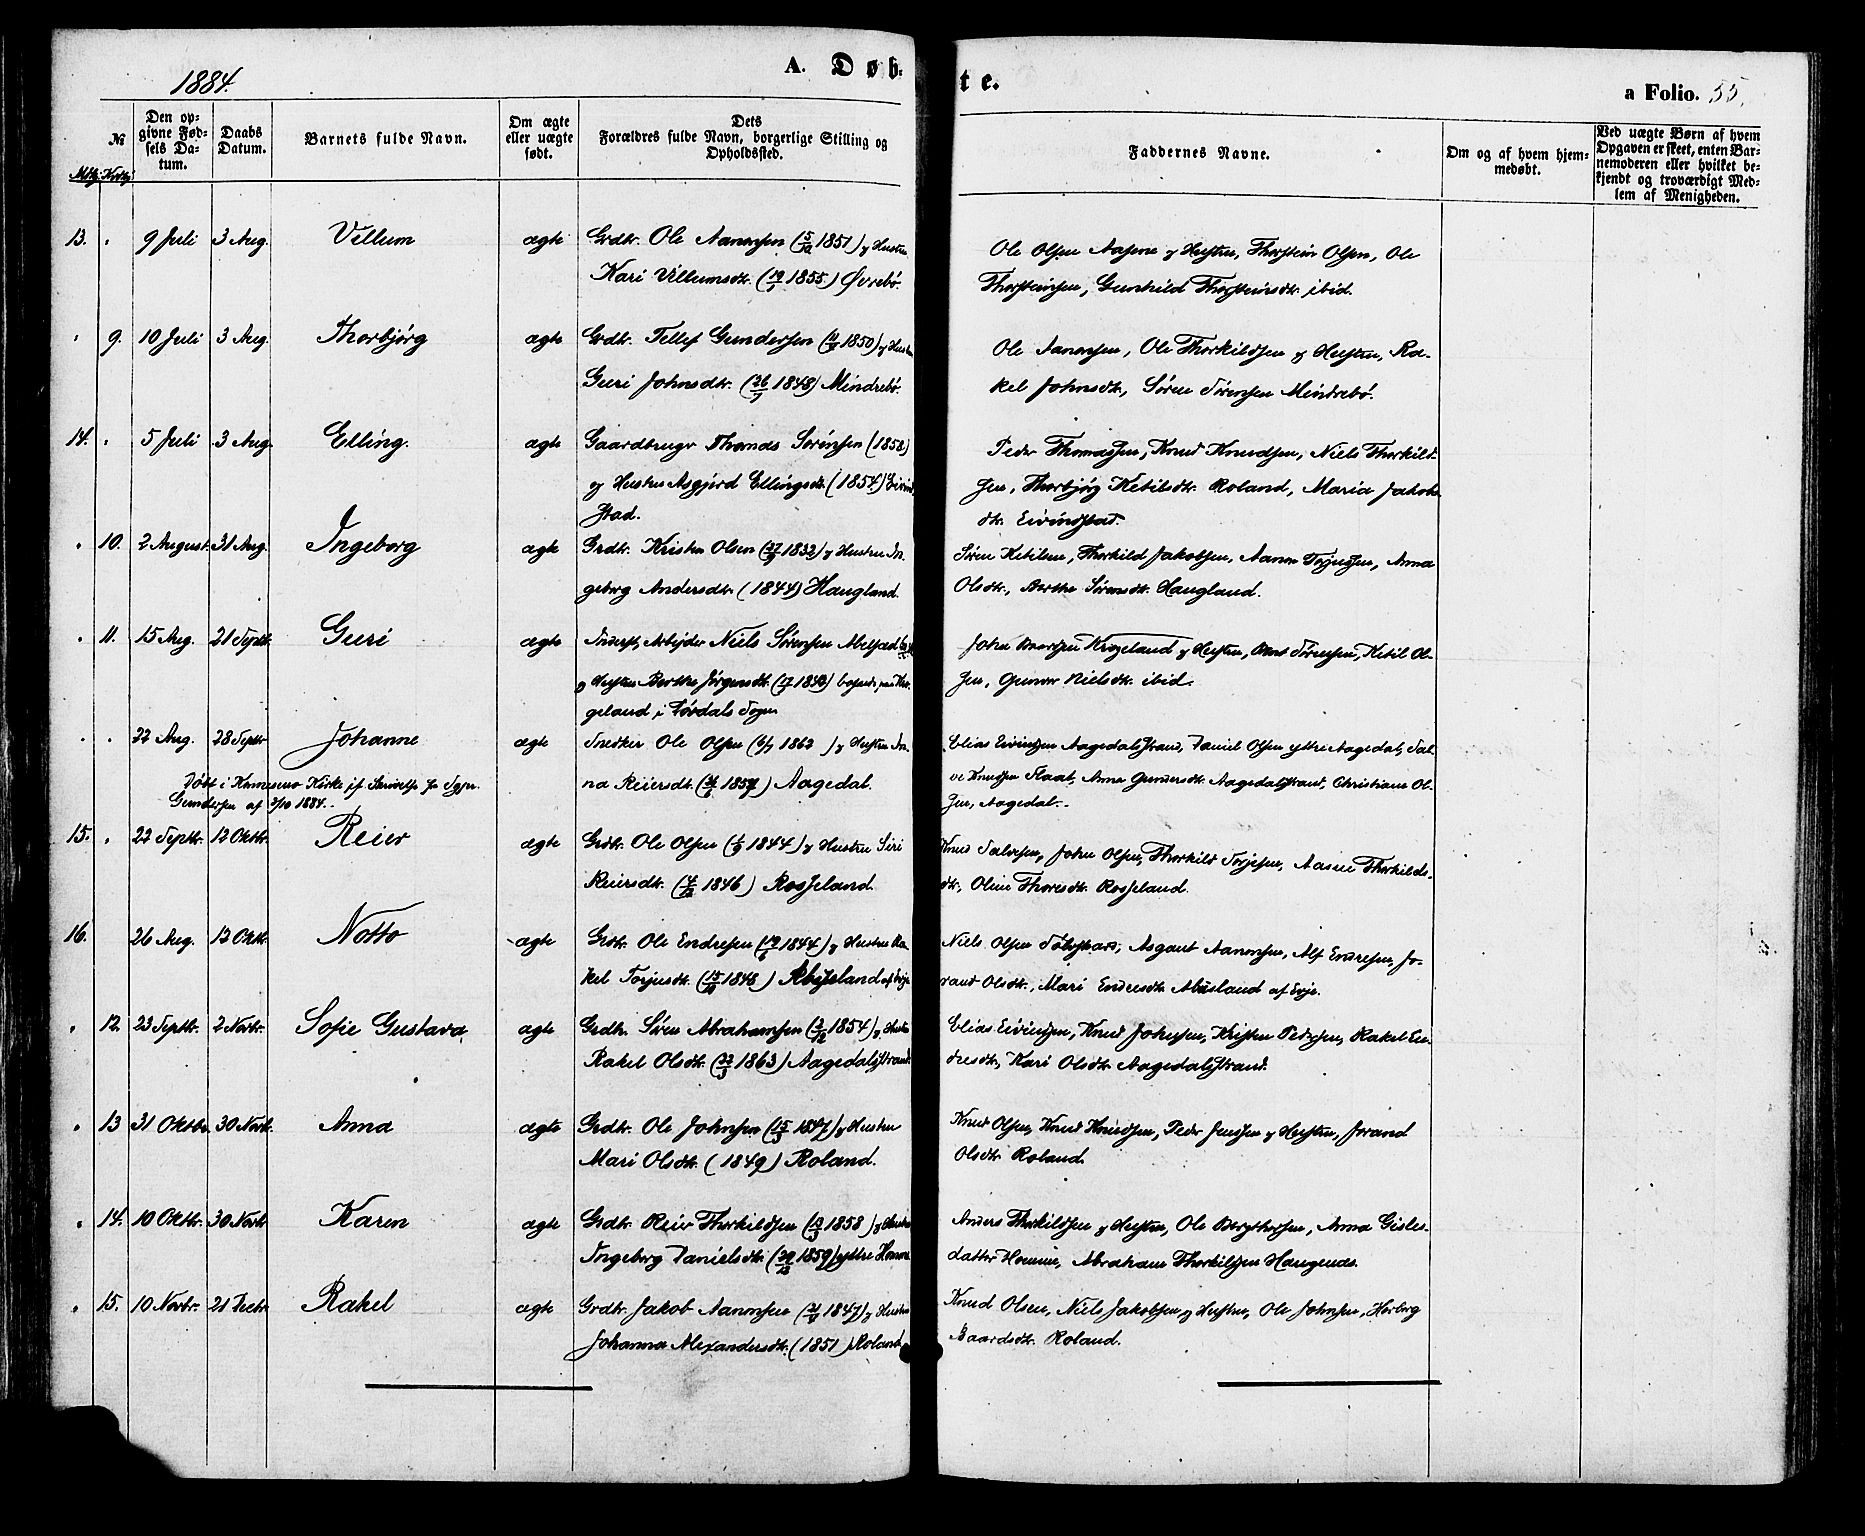 1884.
A. Døb-
te.
a Folio. 55.
№
Mkj. Kvkj.
Den op-
givne Fød-
sels Da-
tum.
Daabs
Datum.
Barnets fulde Navn.
Om ægte
eller uægte
født.
Dets
Forældres fulde Navn, borgerlige Stilling og
Opholdssted.
Faddernes Navne.
Om og af hvem hjem-
medøbt.
Ved uægte Børn af hvem
Opgaven er skeet, enten Bar-
nemoderen eller hvilket be-
kjendt og troværdigt Med-
lem af Menigheden.
13. " 9 Juli 3 Aug. Villum ægte Grdbr. Ole Aanonsen (5/12 1851) og Hustru
Kari Villumsdtr. (19/ 1855) Øvrebø.
Ole Olsen Aasene og Hustru, Thorstein Olsen, Ole
Thorsteinsen, Gunhild Thorsteinsdtr. ibid.
" 9. 10 Juli 3 Aug. Thorbjørg ægte Grdbr. Tellef Gundersen ( 1850) og Hustru
Guri Johnsdtr. (26/7 1848) Mindrebø.
Ole Aanonsen, Ole Thorkildsen og Hustru, Ra-
kel Johnsdtr, Søren Sørensen Mindrebø.
14. " 5 Juli 3 Aug. Elling. ægte Gaardbruger Thomas Sørensen (1858)
og Hustru Asgjerd Ellingsdtr. (1854) Eivind-
stad.
Peder Thomassen, Knud Knudsen, Niels Thorkild-
sen, Thorbjørg Ketilsdtr. Roland, Maria Jakobs-
dtr. Eivindstad.
" 10. 2 August 31 Aug. Ingeborg ægte Grdbr. Kristen Olsen (27/ 1832) og Hustru In-
geborg Andersdtr. (1844) Haugland.
Søren Ketilsen, Thorkild Jakobsen, Aanon Torjussen, Anna
Olsdtr., Berthe Sørensdtr. Haugland.
" 11. 15 Aug. 21 Septr. Guri ægte Inderst, Arbeider Niels Sørensen
og Hustru Berthe Jørgensdtr. (17/ 1840) bosat paa Kro-
geland i Tovdals Sogn
John Krogeland og Hustru, Sørensen, Ketil Ol-
sen, Gunvor Nielsdtr. ibid.
" " 22 Aug. 28 Septr. Johanne ægte Snedker Ole Olsen ( 1862 ) og Hustru An-
na Reiersdtr. ( 1857) Aagedal.
Døbt i Hornnes Kirke jf. Skrivelse fra Sogn.
Gundersen af 3/10 1884.
Elias Eivindsen Aagedalstrand, Daniel Olsen ytre Aagedal, Sal-
ve Knudsen Flaat, Anne Gundersdtr. Aagedalstrand, Christiane Ol-
sen, Aagedal.
15. " 22 Septr. 12 Oktbr. Reier ægte Grdbr. Ole Olsen ( 1844) og Hustru Siri
Reiersdtr. (4/12 1846) Rosseland.
Knud Salvesen, John Olsen, Thorkild Torjesen, Aasne Thorkilds-
dtr., Oline Thoresdtr. Rosseland.
16. 26 Aug. 12 Oktbr. Notto ægte Grdbr. Ole Endresen (19/ 1844) og Hustru Ra-
kel Torjusdtr. (15/10 1848) Abusland af Evje
Niels Olsen , Asgaut Aanonsen, Alf Endresen, Jo-
rand Olsdtr., Mari Endresdtr. Abusland af Evje.
" 12. 23 Septr. 2 Novbr. Sofie Gustava ægte Grdbr. Søren Abrahamsen (3/12 1854) og Hustru
Rakel Olsdtr. ( 1863) Aagedalstrand
Elias Eivindsen, Knud Johnsen, Kristen Pedersen, Rakel En-
dresdtr., Kari Olsdtr. Aagedalstrand.
" 13 31 Oktbr. 30 Novbr. Anna ægte Grdbr. Ole Johnsen (15/3 1847) og Hustru
Mari Olsdtr. (1849) Roland.
Knud Olsen, Knud Knudsen, Peder Jensen og Hustru, Jorand
Olsdtr. Roland.
" 14. 10 Oktbr. 30 Novbr. Karen ægte Grdbr. Reier Thorkildsen ( 1858) og Hustru
Ingeborg Danielsdtr. (20/12 1859) yttre Homme
Anders Thorkildsen og Hustru, Ole Bergthorsen, Anna Gisles-
datter Homme, Abraham Thorkildsen Haugende.
" 15. 10 Novbr. 21 Decbr. Rakel ægte Grdbr. Jakob Aanonsen (21/ 1847) og Hustru
Johanna Alexandersdtr. (1851) Roland
Knud Olsen, Niels Jakobsen og Hustru, Ole Johnsen, Herborg
Baardsdtr. Roland.